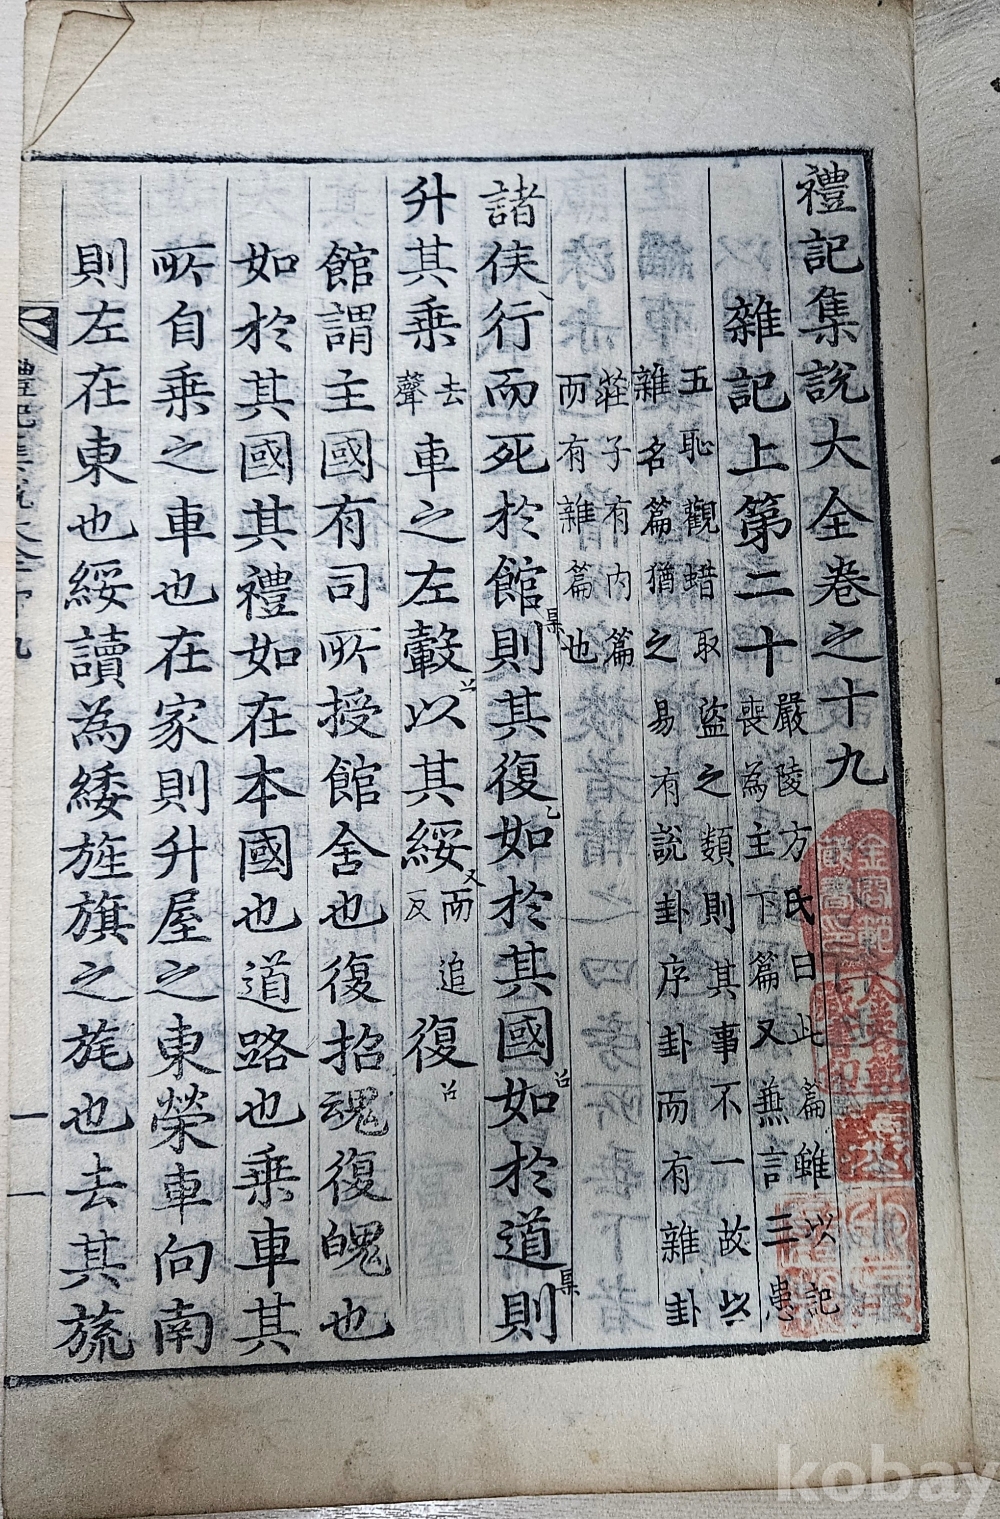 禮記集說大全卷之十九
雜記上第二十
嚴陵方氏曰此篇雖以記
喪為主下篇又兼言三患
五恥觀蜡取盜之類則其事不一故以
雜名篇猶之易有說卦序卦而有雜卦
莊子有內篇
而有雜篇也
諸侯行而死於館則其復如於其國如於道則
升其乘去聲車之左轂以其綏而追反復
館謂主國有司所授館舍也復招魂復魄也
如於其國其禮如在本國也道路也乘車其
所自乘之車也在家則升屋之東榮車向南
則左在東也綏讀為緌旌旗之旄也去其旒
禮記集說大全 十九
一
kobay